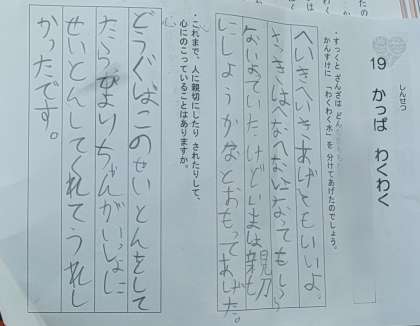 しんせつ
19 かっぱ わくわく
すっくと ざんざは どん
かんすけに 「わくわく水」を 分けてあげたのでしょう。
へいきへいきあげてもいいよ。
さっきはへなへなになってもしら
ないよっていったけどいまは親切
にしようかなとおもってあげた。
これまで、人に親切に したり されたりして、
心にのこっていることは ありますか。
どうぐばこのせいとんをして
たらひまりちゃんがいっしょに
せいとんしてくれてうれし
かったです。